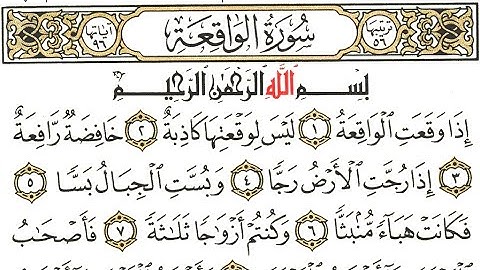 ترتيبها ٥٦ سُورَةُ الوَاقِعَةِ آياتها ٩٦
بِسْمِ اللَّهِ الرَّحْمَنِ الرَّحِيمِ
إِذَا وَقَعَتِ الْوَاقِعَةُ ١ لَيْسَ لِوَقْعَتِهَا كَاذِبَةٌ ٢ خَافِضَةٌ رَّافِعَةٌ
٣ إِذَا رُجَّتِ الْأَرْضُ رَجًّا ٤ وَبُسَّتِ الْجِبَالُ بَسًّا ٥
فَكَانَتْ هَبَاءً مُّنۢبَثًّا ٦ وَكُنتُمْ أَزْوَاجًا ثَلَاثَةً ٧ فَأَصْحَابُ